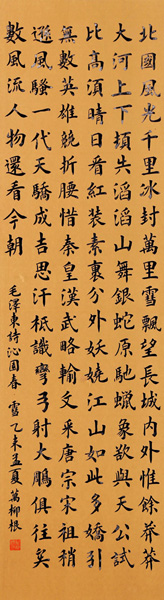 北國風光千里冰封萬里雪飄望長城內外惟餘莽莽
大河上下頓失滔滔山舞銀蛇原馳蠟象欲與天公試
比高須晴日看紅裝素裹分外妖嬈江山如此多嬌引
無數英雄競折腰惜秦皇漢武略輸文采唐宗宋祖稍
遜風騷一代天驕成吉思汗祗識彎弓射大鵰俱往矣
數風流人物還看今朝
毛澤東詩沁園春 雪 乙未孟夏 萬柳根